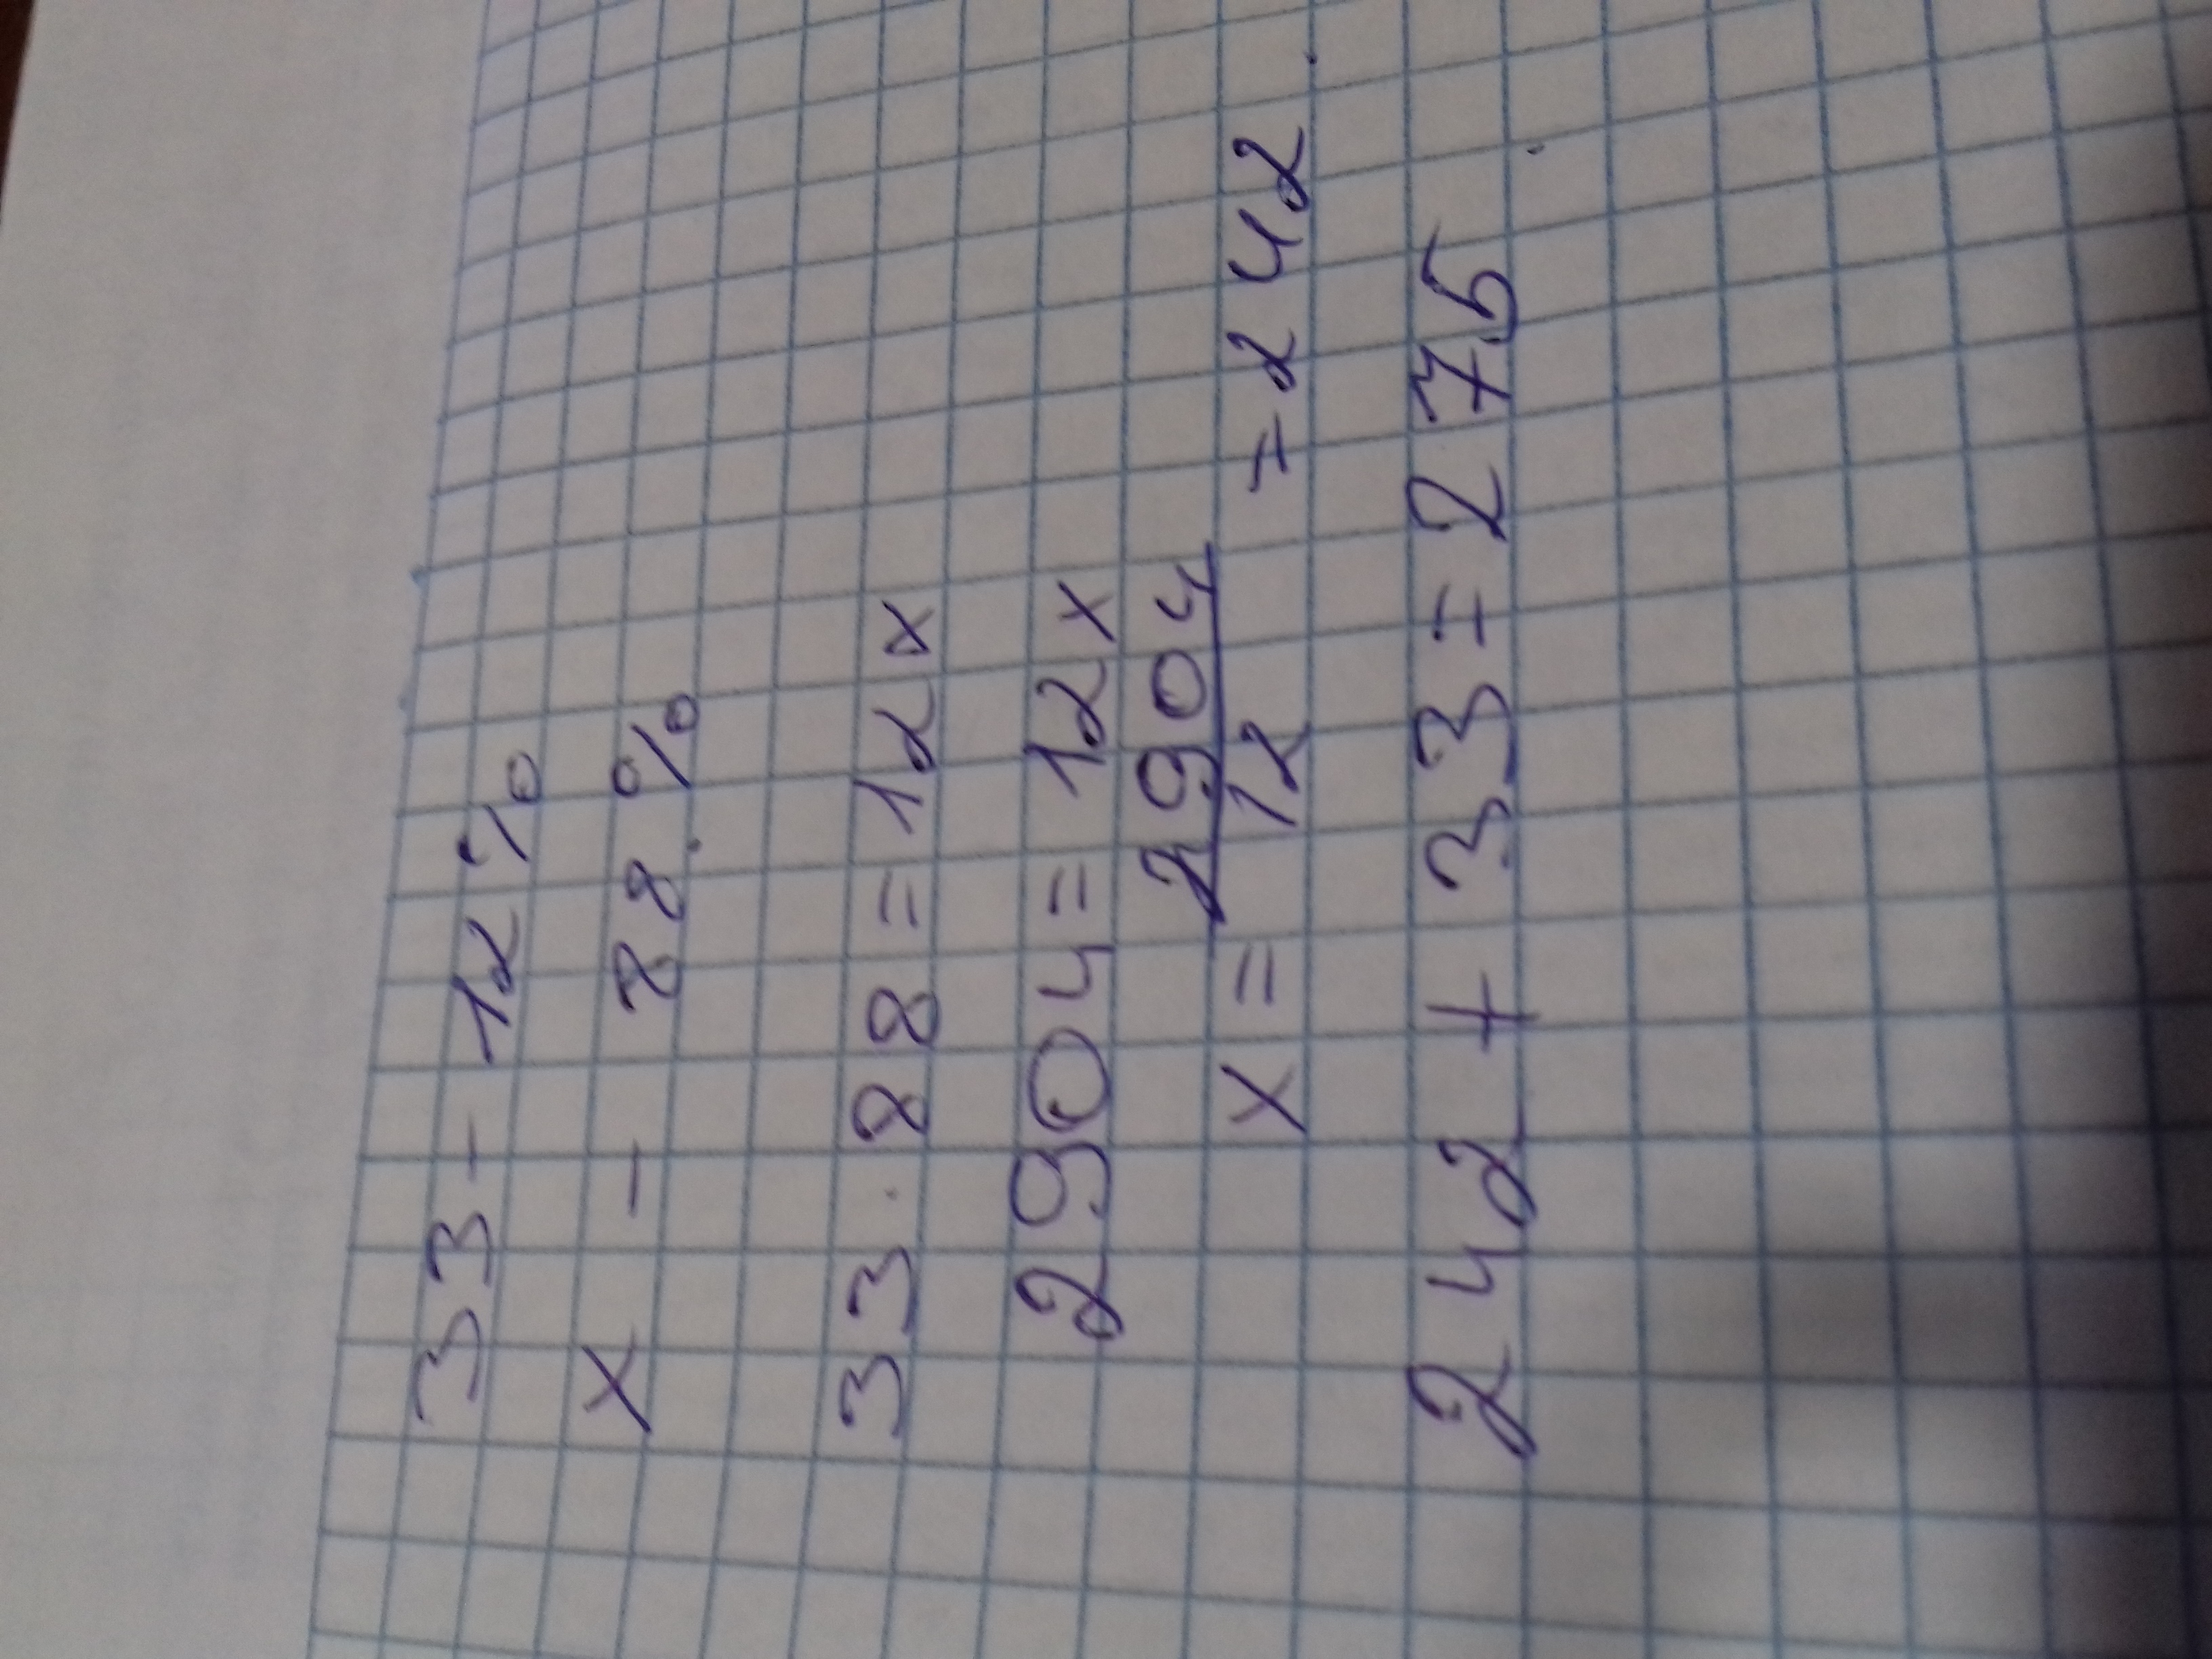 33 - 12%
x - 88%
33 · 88 = 12x
2904 = 12x
x = 2904/12 = 242
242 + 33 = 275